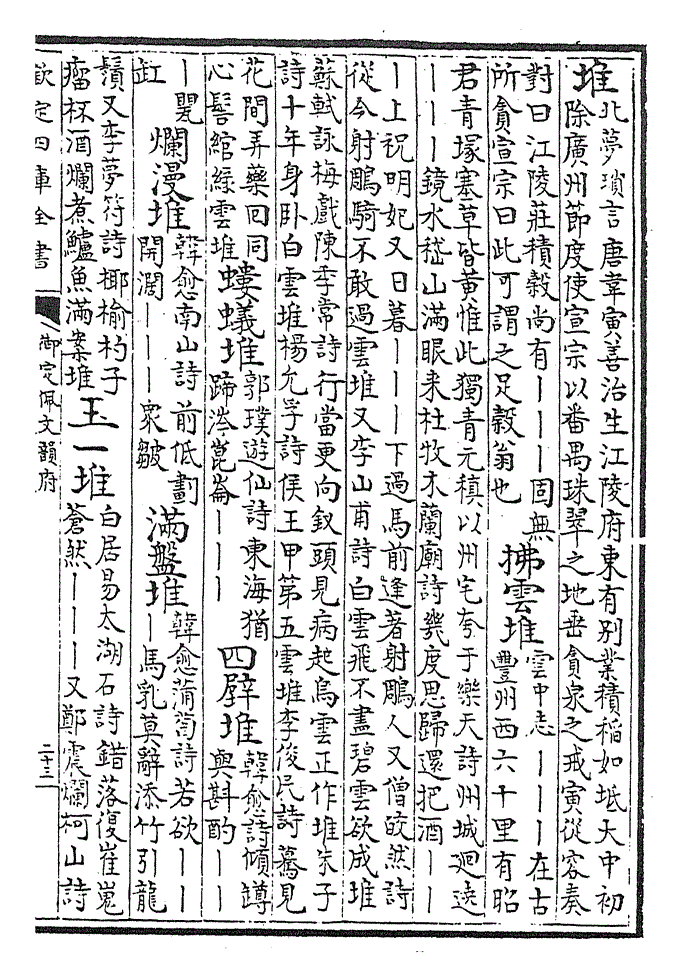 堆北夢瑣言唐韋寅善治生江陵府東有别業積稻如坻大中初
除廣州節度使宣宗以番禺珠翠之地垂貪泉之戒寅從容奏
對曰江陵莊積穀尚有｜｜｜固無
所貪宣宗曰此可謂之足穀翁也
拂雲堆
雲中志｜｜｜在古
豐州西六十里有昭
君青塚塞草皆黃惟此獨青元稹以州宅夸于樂天詩州城迴遶
｜｜｜鏡水稽山滿眼来杜牧木蘭廟詩幾度思歸還把酒｜｜
｜上祝明妃又日暮｜｜｜下過馬前逢著射鵰人又僧皎然詩
從今射鵰騎不敢過雲堆又李山甫詩白雲飛不盡碧雲欲成堆
蘇軾詠梅戲陳季常詩行當更向釵頭見病起烏雲正作堆朱子
詩十年身卧白雲堆楊允孚詩侯王甲第五雲堆李俊民詩驀見
花間弄藥回同
心髻綰綠雲堆
螻蟻堆
郭璞遊仙詩東海猶
蹄涔崑崙｜｜｜
四壁堆
韓愈詩傾罇
與斟酌｜｜
｜甖
缸
爛漫堆
韓愈南山詩前低劃
開濶｜｜｜衆皺
滿盤堆
韓愈蒲萄詩若欲｜｜
｜馬乳莫辭添竹引龍
鬚又李夢符詩椰榆杓子
瘤杯酒爛煮鱸魚滿案堆
玉一堆
白居易太湖石詩錯落復崔嵬
蒼然｜｜｜又鄭震爛柯山詩
欽定四庫全書
御定佩文韻府
二十三